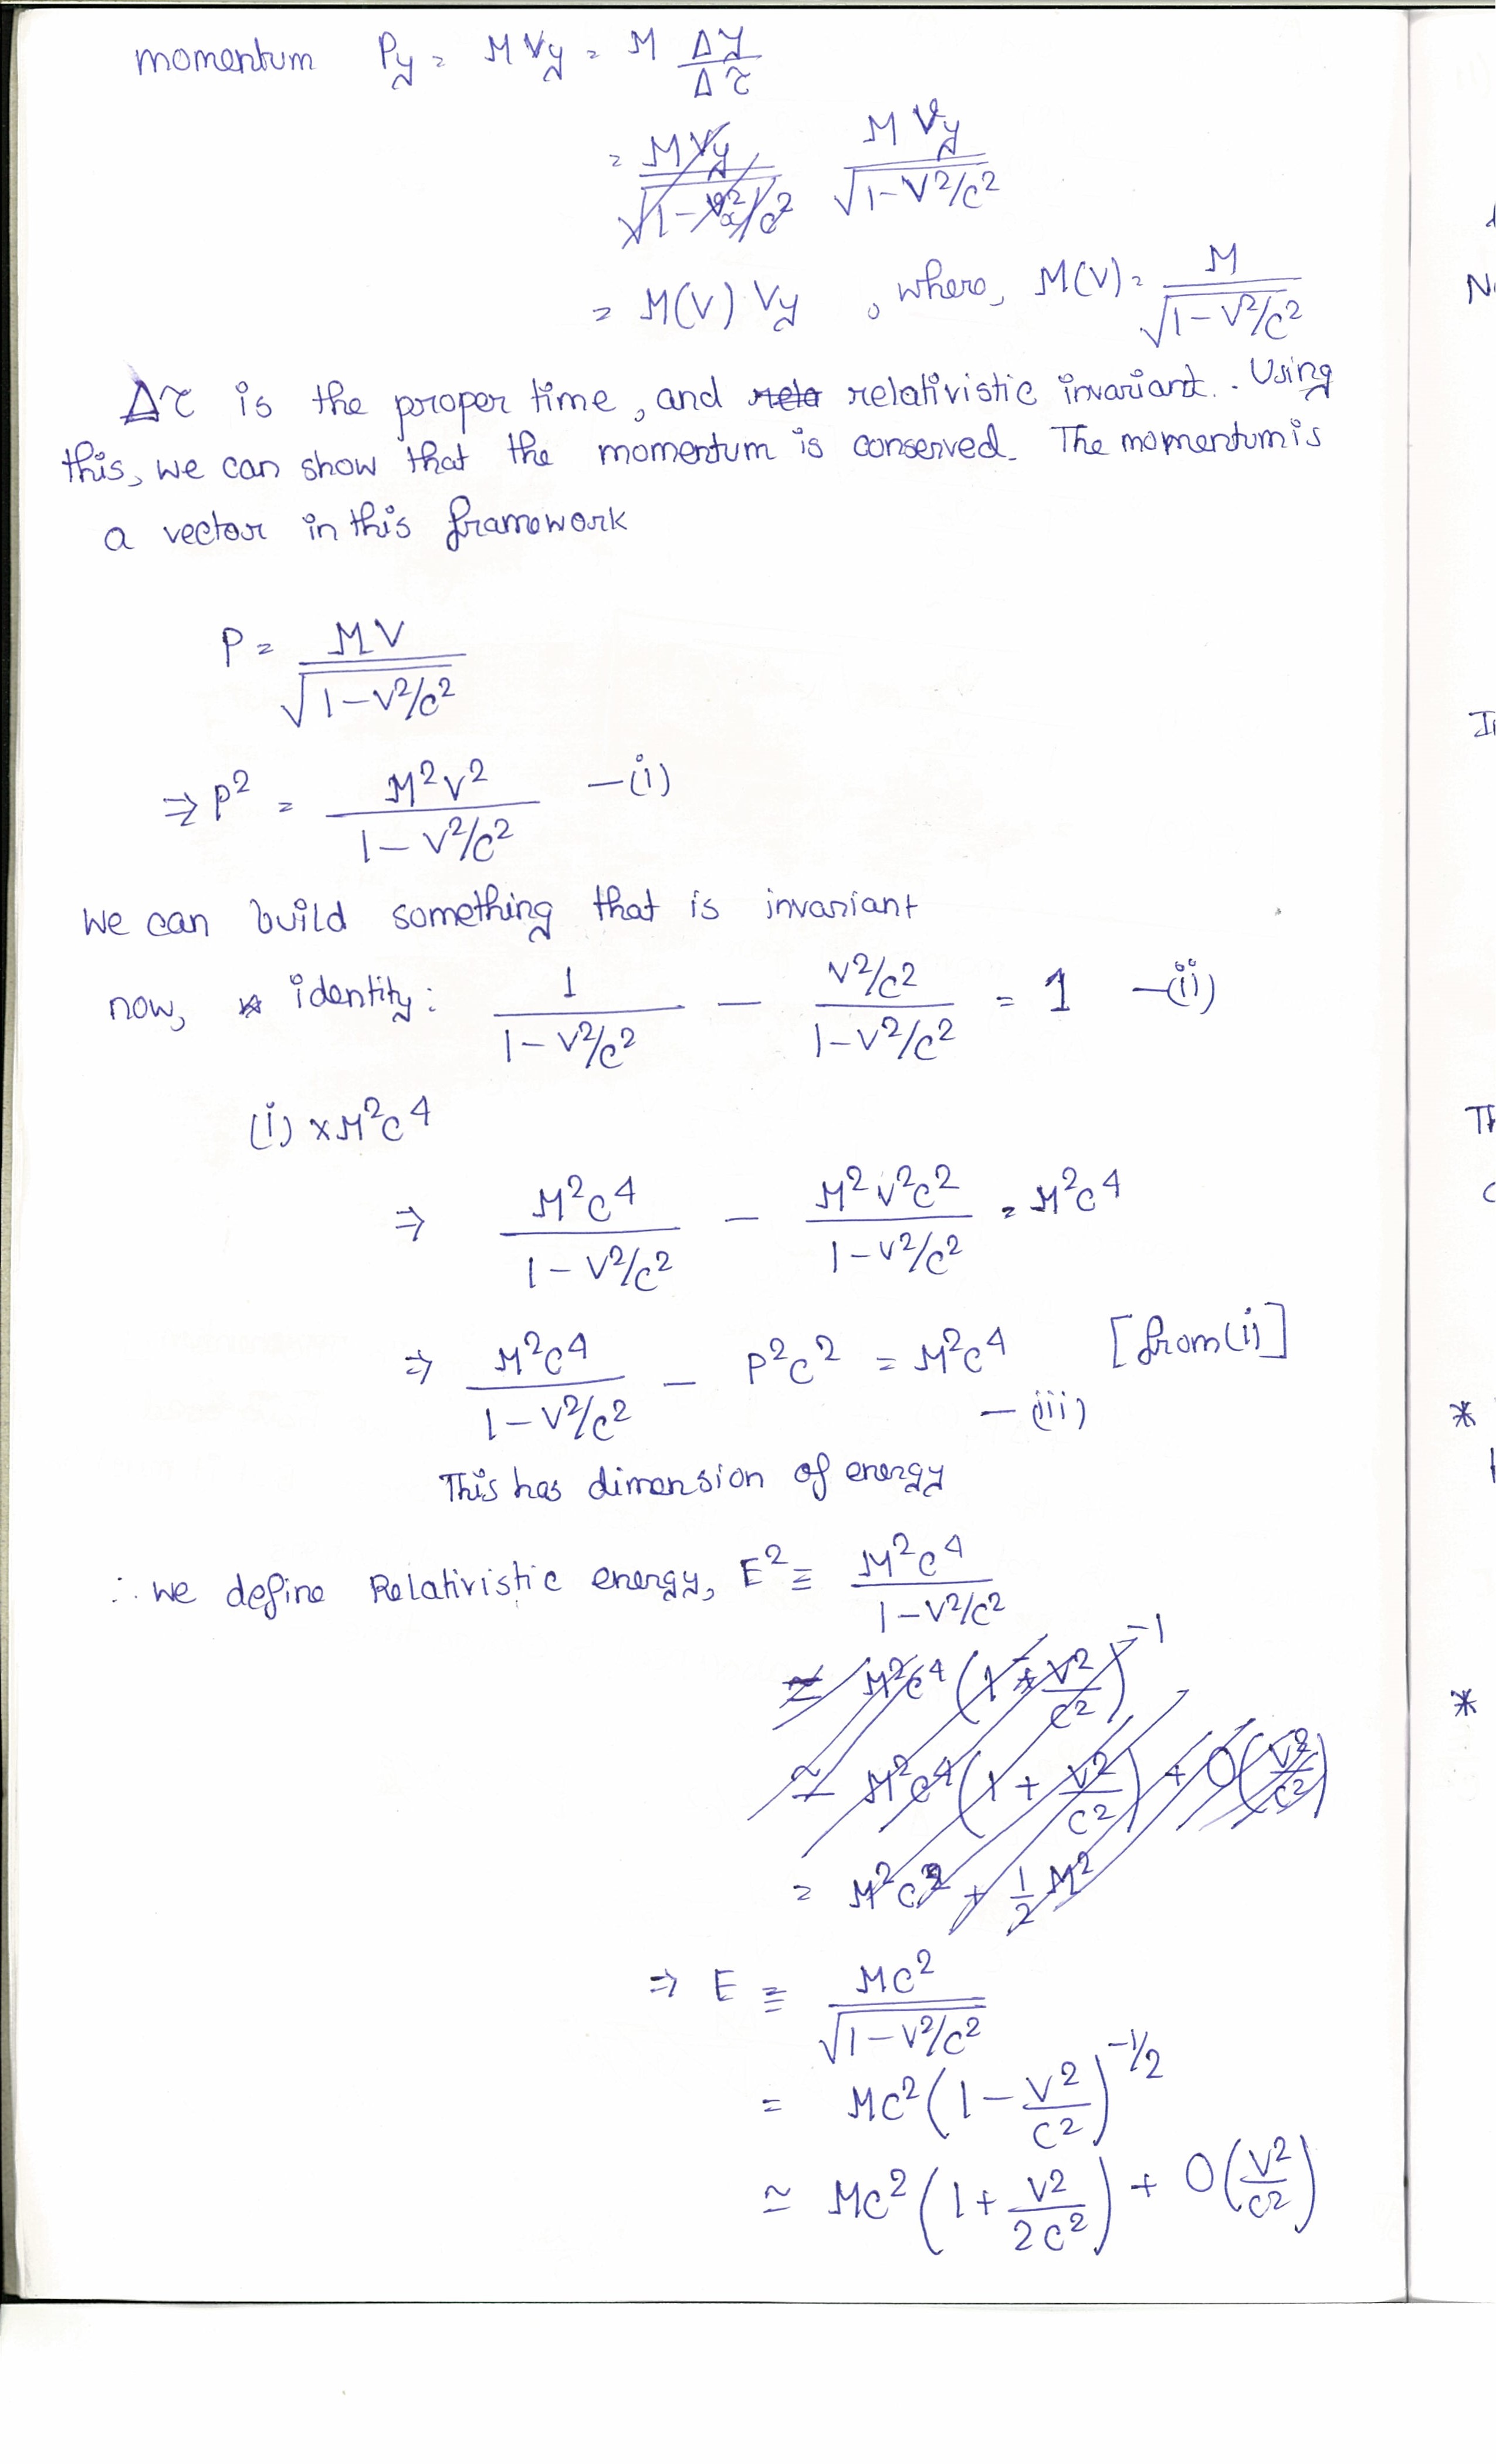 momentum Py = M Vy = M Δy/Δτ
= M Vy/√(1 - Vx²/c²) M Vy/√(1 - V²/c²)
= M(V) Vy , where, M(V) = M/√(1 - V²/c²)
Δτ is the proper time, and rela relativistic invariant. Using
this, we can show that the momentum is conserved. The momentum is
a vector in this framework
P = MV/√(1 - V²/c²)
⇒ P² = M²V²/(1 - V²/c²) — (i)
We can build something that is invariant
now, identity: 1/(1 - V²/c²) - (V²/c²)/(1 - V²/c²) = 1 — (ii)
(i) × M²c⁴
⇒ M²c⁴/(1 - V²/c²) - M²V²c²/(1 - V²/c²) = M²c⁴
⇒ M²c⁴/(1 - V²/c²) - P²c² = M²c⁴ [from (i)]
— (iii)
This has dimension of energy
∴ We define Relativistic energy, E² ≡ M²c⁴/(1 - V²/c²)
≃ M²c⁴(1 - V²/c²)⁻¹
≃ M²c⁴(1 + V²/c²) + O(V²/c²)
= M²c² + 1/2 M²
⇒ E ≡ Mc²/√(1 - V²/c²)
= Mc²(1 - V²/c²)^(-1/2)
≃ Mc²(1 + V²/2c²) + O(V²/c²)